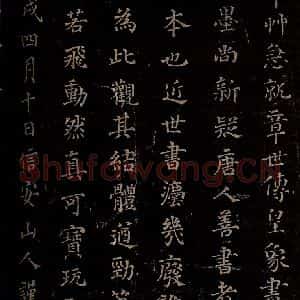 草急就章世傳皇象書
墨尚新疑唐人善書者
本也近世書灋幾廢
為此觀其結體遒勁
若飛動然真可寶玩
戌四月十日雩安山人謹
Shufawang.Cn